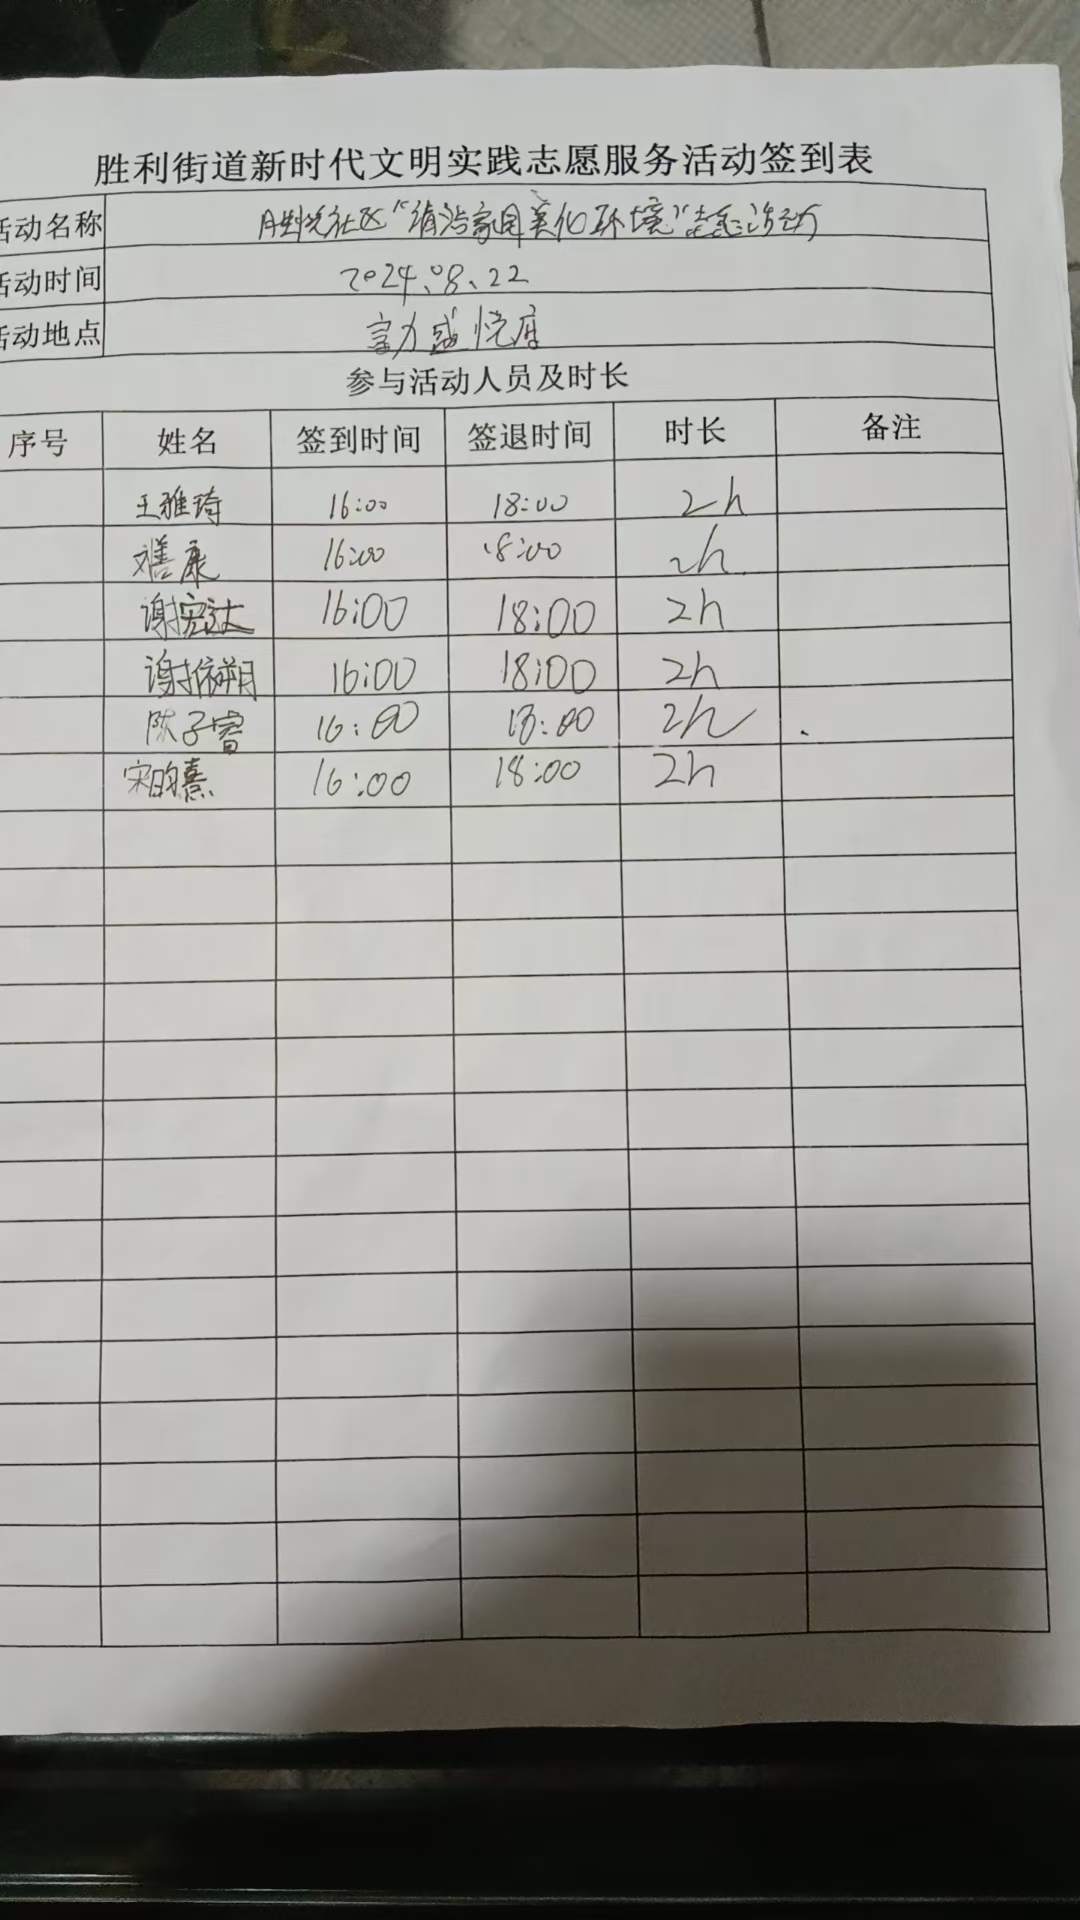 胜利街道新时代文明实践志愿服务活动签到表
活动名称 胜悦社区“清洁家园美化环境”志愿活动
活动时间 2024.08.22
活动地点 富力盛悦府
参与活动人员及时长
序号 姓名 签到时间 签退时间 时长 备注
王雅琦 16:00 18:00 2h
刘善康 16:00 18:00 2h
谢宏达 16:00 18:00 2h
谢依朔 16:00 18:00 2h
陈子睿 16:00 18:00 2h
宋昀熹 16:00 18:00 2h